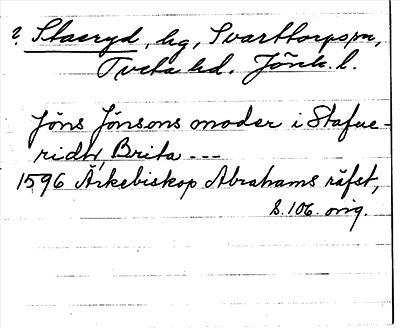 ? Staeryd, hg, Svarttorps sn,
Tveta hd. Jönk. l.
Jöns Jönsons moder i Stafue-
ridh, Brita ---
1596 Ärkebiskop Abrahams räfst,
S. 106. orig.